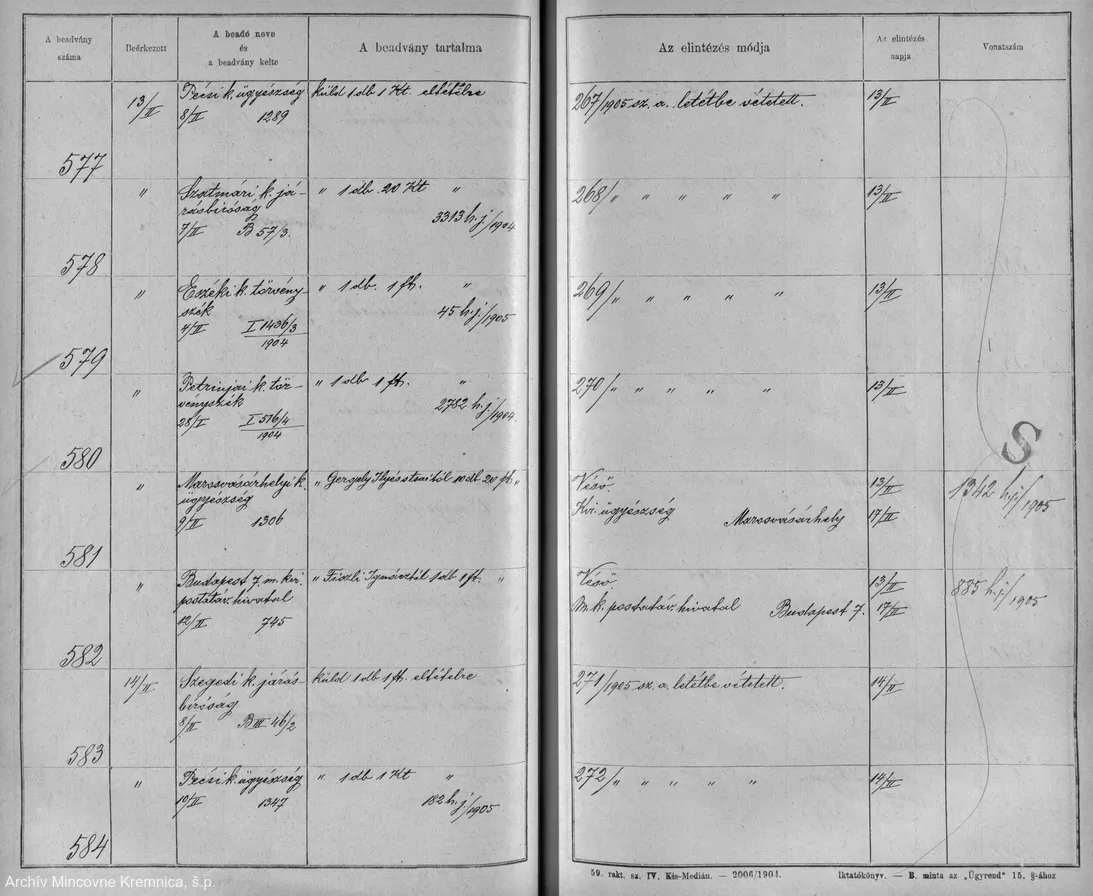 A beadvány
száma
Beérkezett
A beadó neve
és
a beadvány kelte
A beadvány tartalma
Az elintézés módja
Az elintézés
napja
Vonatszám
577
13/II
Pécsi k. ügyészség
8/II 1289
küld 1 db 1 Kt. eltételre
267/1905 sz. a. letétbe vétetett.
13/II
578
"
Szatmári k. já-
rásbiróság
7/II B 57/3.
" 1 db 20 Kt "
3313 h.j./1904.
268/ " " " " "
13/II
579
"
Eszéki k. törvény-
szék
4/II I 1436/3
1904
" 1 db. 1 ft. "
45 h.j./1905
269/ " " " " "
13/II
580
"
Petrinjai k. tör-
vényszék
28/I I 516/4
1904
" 1 db 1 ft. "
2782 h.j./1904.
270/ " " " " "
13/II
581
"
Marosvásárhelyi k.
ügyészség
9/II 1306
" Gergely Ilyés 10 db 20 ft "
Véső.
Kir. ügyészség Marosvásárhely
13/II
17/II
1342 h.j./1905
S
582
"
Budapest 7. m. kir.
postatáv. hivatal
12/II 745
" Fiszli Ignácztól 1 db 1 ft. "
Véső
M. k. postatáv. hivatal Budapest 7.
13/II
17/II
885 h.j./1905
583
14/II
Szegedi k. járás-
biróság
8/II B III 46/2
küld 1 db 1 ft. eltételre
271/1905 sz. a. letétbe vétetett.
14/II
584
"
Pécsi k. ügyészség
10/II 1347
" 1 db 1 Kt "
182 h.j./1905
272/ " " " " "
14/II
59. rakt. sz. IV. Kis-Medián. — 2006/1904.
Iktatókönyv. — B. minta az „Ügyrend" 15. §-ához
Archív Mincovne Kremnica, š.p.